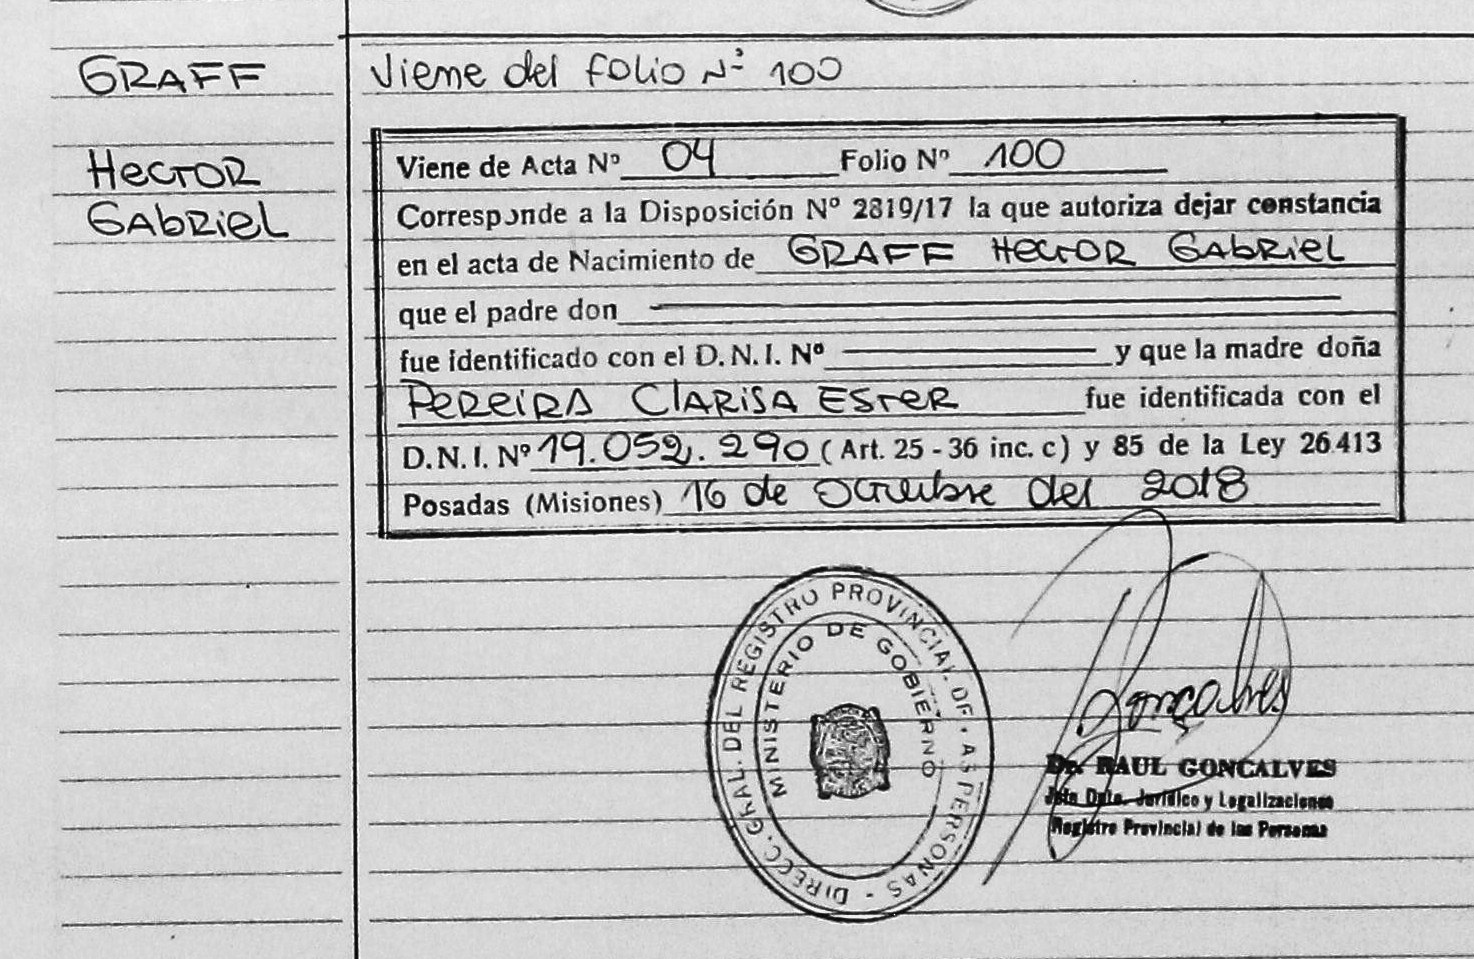 GRAFF
Hector
Gabriel
Viene del folio Nº 100
Viene de Acta Nº 04 Folio Nº 100
Corresponde a la Disposición Nº 2819/17 la que autoriza dejar constancia
en el acta de Nacimiento de GRAFF Hector Gabriel
que el padre don
fue identificado con el D.N.I. Nº y que la madre doña
Pereira Clarisa Ester fue identificada con el
D.N.I. Nº 19.052.290 (Art. 25 - 36 inc. c) y 85 de la Ley 26.413
Posadas (Misiones) 16 de Octubre del 2018
DIREC. GRAL. DEL REGISTRO PROVINCIAL DE LAS PERSONAS -
MINISTERIO DE GOBIERNO
Gonçalves
Dr. RAUL GONCALVES
Jefe Dpto. Jurídico y Legalizaciones
Registro Provincial de las Personas